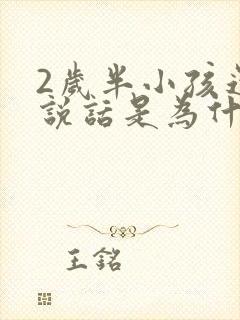 2歲半小孩
說話是為什
王銘